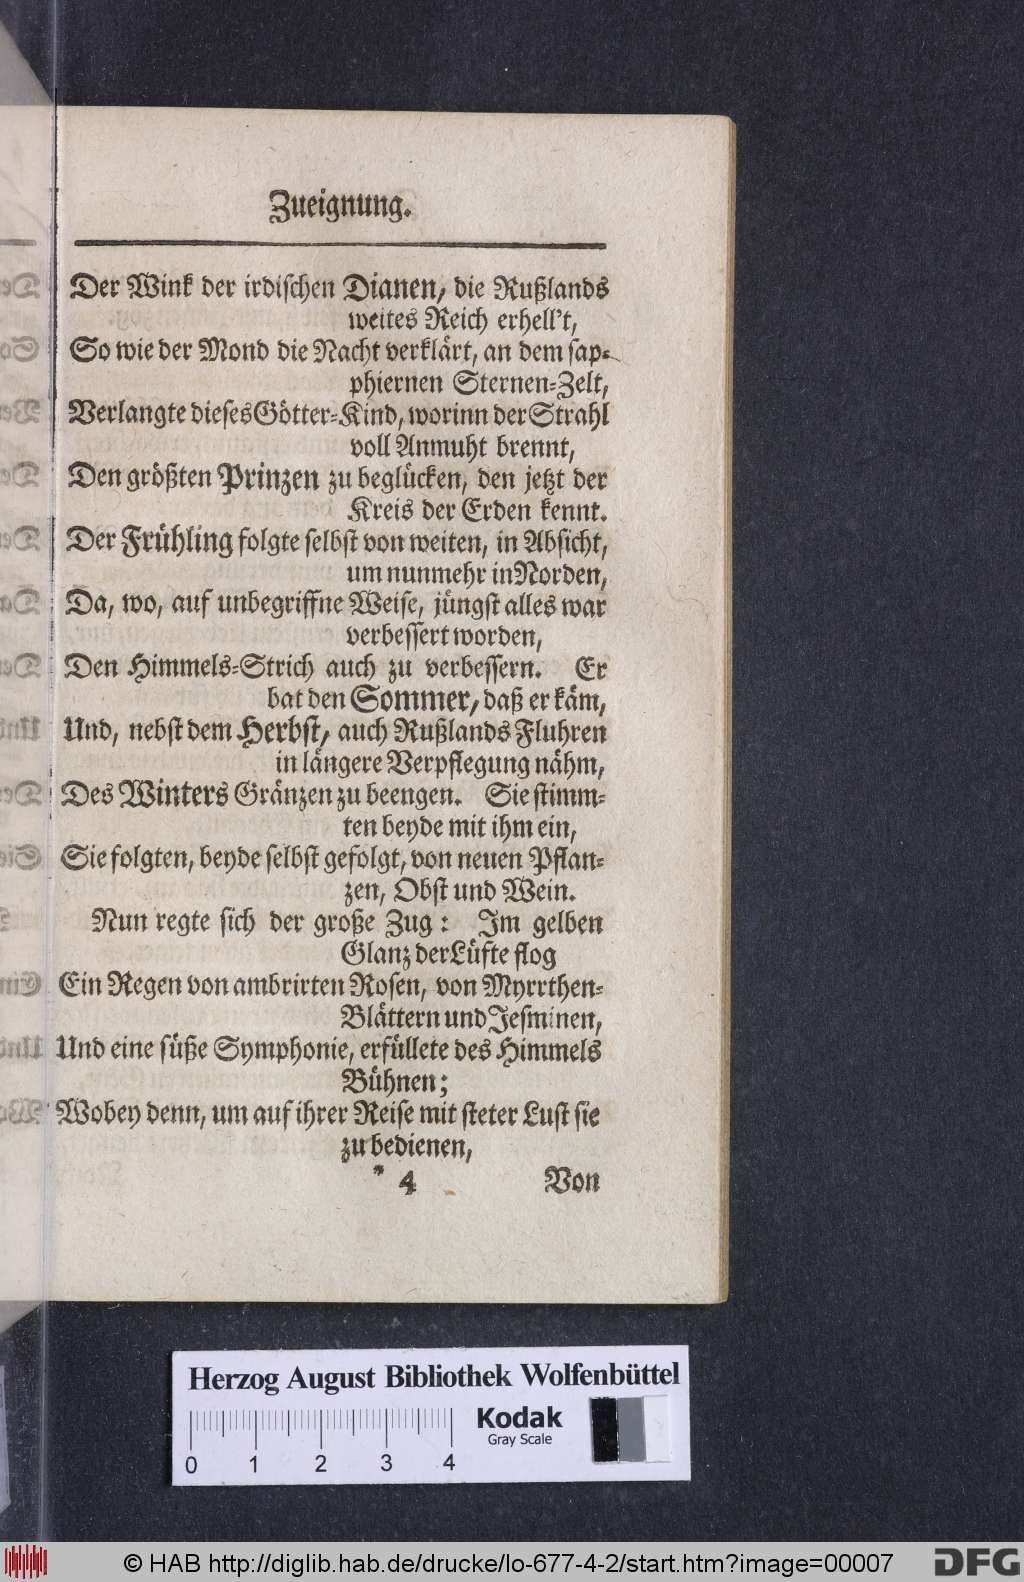 Zueignung.
Der Wink der irdischen Dianen, die Rußlands
weites Reich erhell't,
So wie der Mond die Nacht verklärt, an dem sap-
phiernen Sternen-Zelt,
Verlangte dieses Götter-Kind, worinn der Strahl
voll Anmuht brennt,
Den größten Prinzen zu beglücken, den jetzt der
Kreis der Erden kennt.
Der Frühling folgte selbst von weiten, in Absicht,
um nunmehr in Norden,
Da, wo, auf unbegriffne Weise, jüngst alles war
verbessert worden,
Den Himmels-Strich auch zu verbessern. Er
bat den Sommer, daß er käm,
Und, nebst dem Herbst, auch Rußlands Fluhren
in längere Verpflegung nähm,
Des Winters Gränzen zu beengen. Sie stimm-
ten beyde mit ihm ein,
Sie folgten, beyde selbst gefolgt, von neuen Pflan-
zen, Obst und Wein.
Nun regte sich der große Zug: Im gelben
Glanz der Lüfte flog
Ein Regen von ambrirten Rosen, von Myrrthen-
Blättern und Jesminen,
Und eine süße Symphonie, erfüllete des Himmels
Bühnen;
Wobey denn, um auf ihrer Reise mit steter Lust sie
zu bedienen,
* 4 Von
Herzog August Bibliothek Wolfenbüttel
Kodak
Gray Scale
0 1 2 3 4
© HAB http://diglib.hab.de/drucke/lo-677-4-2/start.htm?image=00007
DFG